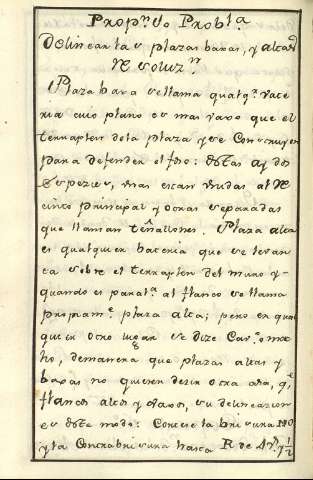 Propⁿ Vo Probᵗᵃ
Delinear las plazas baxas, y altas
Resoluzⁿ
Plaza baxa se llama qualqᵃ vate
ria cuio plano es mas vaxo que el
terraplen de la plaza y se Construyen
para defender el foso: destas ay dos
Espezies, unas estan unidas al Re
cinto principal y otras separadas
que llaman teñallones. Plaza alta
es qualquier bateria que se levan
ta sobre el terraplen del muro y
quando es paralᵃ al flanco se llama
propiamᵉ plaza alta; pero en qual
quier otro lugar se dize Cavᵒ o ma
cho, demanera que plazas altas y
baxas no quieren dezir otra cosa, qᵉ
flancos altos y vaxos, su delineazion
es deste modo: Conste la brisura NO
y la Contrabrisura hasta R de 4Vˢ 7½